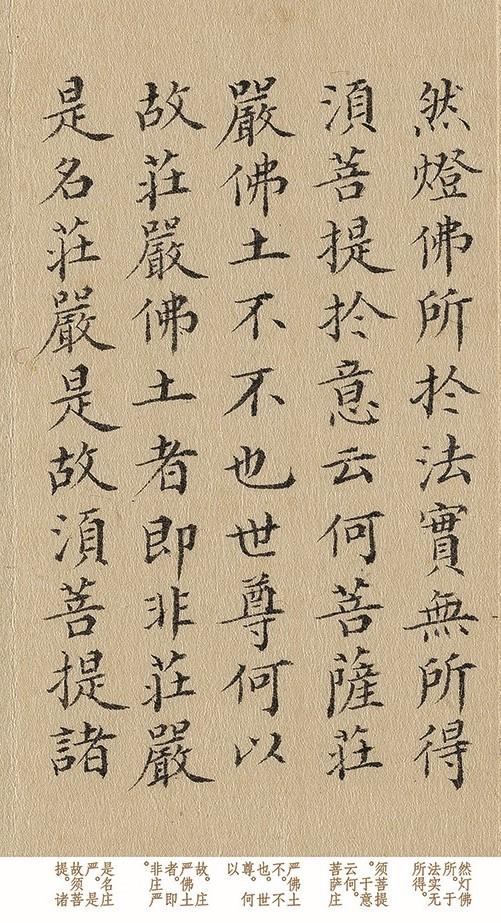 然燈佛所扵法實無所得
湏菩提扵意云何菩薩莊
嚴佛土不不也世尊何以
故莊嚴佛土者即非莊嚴
是名莊嚴是故湏菩提諸
然灯佛
所。于
法实无
所得。
须菩提
。于意
云何。
菩萨庄
严佛土
不。不
也。世
尊。何
以
故。庄
严佛土
者。即
非庄严
。
是名庄
严。是
故须菩
提。诸